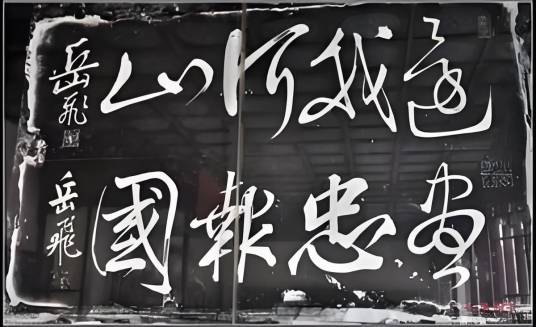 還我河山 岳飛
盡忠報國 岳飛